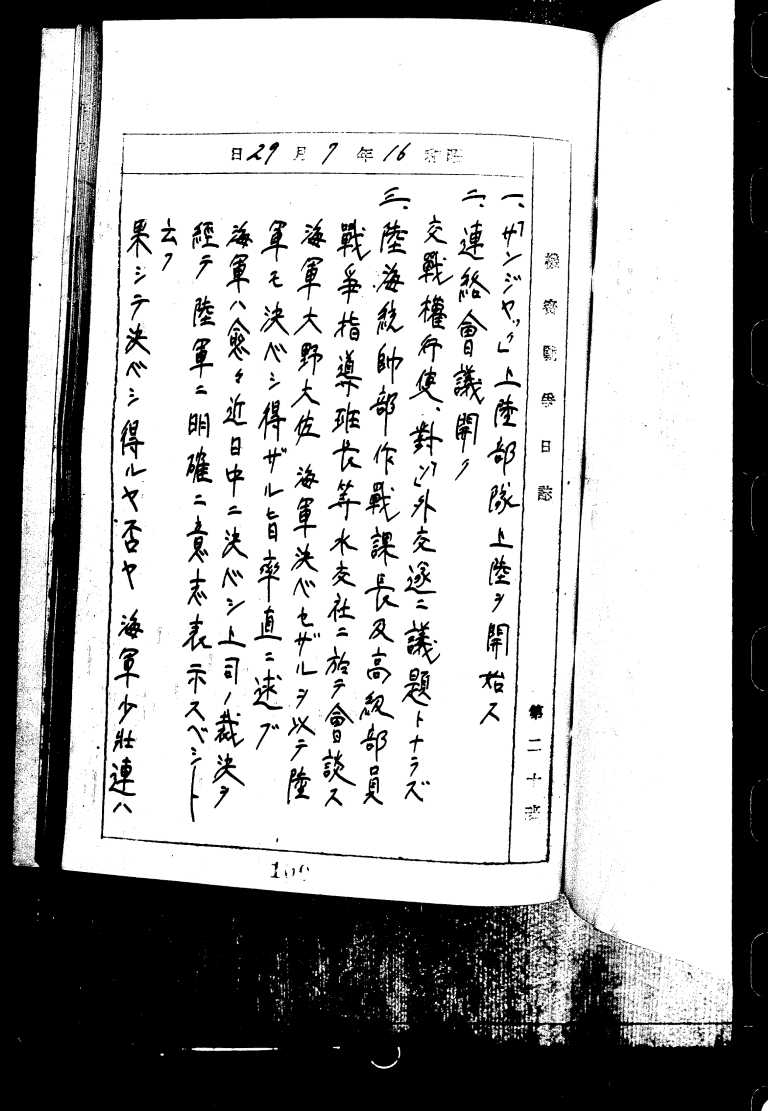 機密戰爭日誌 第二十班
昭和16年7月29日
一、「サンジヤック」上陸部隊上陸ヲ開始ス
二、連絡會議開ク
交戰權行使、對「ソ」外交遂ニ議題トナラズ
三、陸海統帥部作戰課長及高級部員
戰爭指導班長等水交社ニ於テ會談ス
海軍大野大佐 海軍決ベセザルヲ以テ陸
軍モ決ベシ得ザル旨率直ニ述ブ
海軍ハ愈々近日中ニ決ベシ上司ノ裁決ヲ
經テ陸軍ニ明確ニ意志表示スベシト
云フ
果シテ決ベシ得ルヤ否ヤ 海軍少壯連ハ